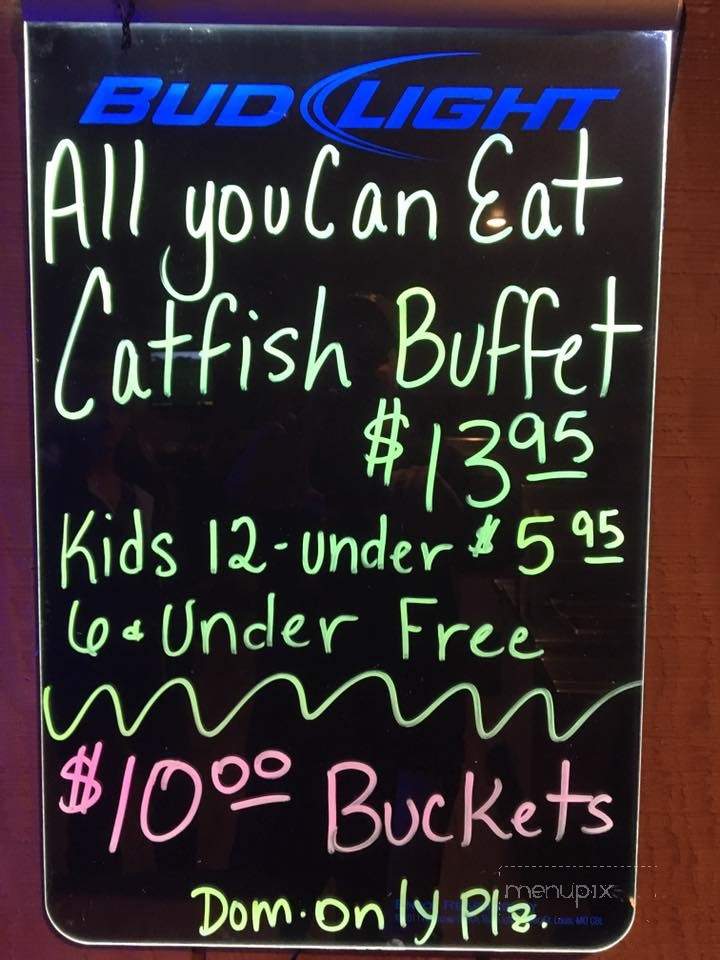 BUD LIGHT
All you Can Eat
Catfish Buffet
$13.95
Kids 12-under $5.95
6 & Under Free
$10.00 Buckets
menupix
Dom. only Plz.